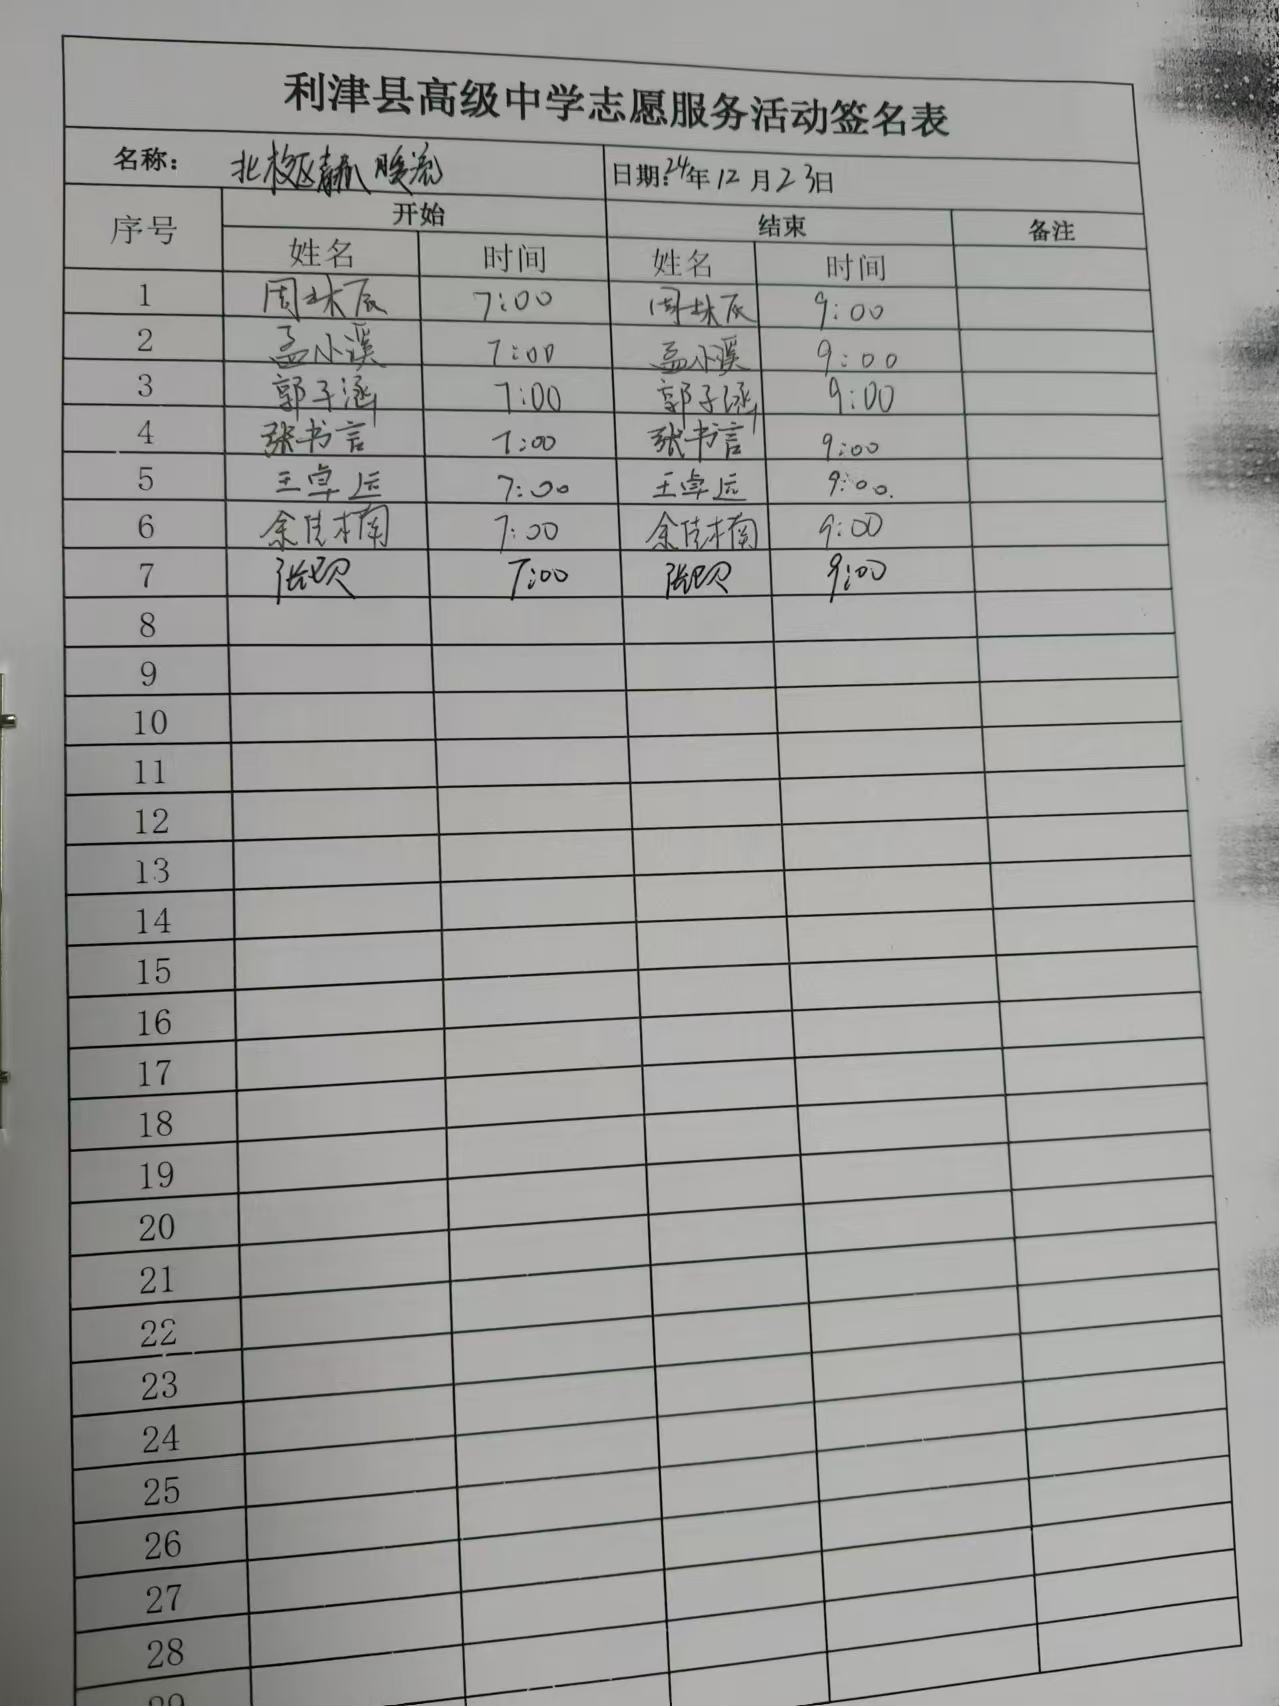 利津县高级中学志愿服务活动签名表
名称： 北校区 暖流 日期：24年12月23日
序号 开始 结束 备注
姓名 时间 姓名 时间
1 周林辰 7:00 周林辰 9:00
2 孟小溪 7:00 孟小溪 9:00
3 郭子涵 7:00 郭子涵 9:00
4 张书言 7:00 张书言 9:00
5 王卓远 7:00 王卓远 9:00.
6 余佳楠 7:00 余佳楠 9:00
7 7:00 9:00
8
9
10
11
12
13
14
15
16
17
18
19
20
21
22
23
24
25
26
27
28
29